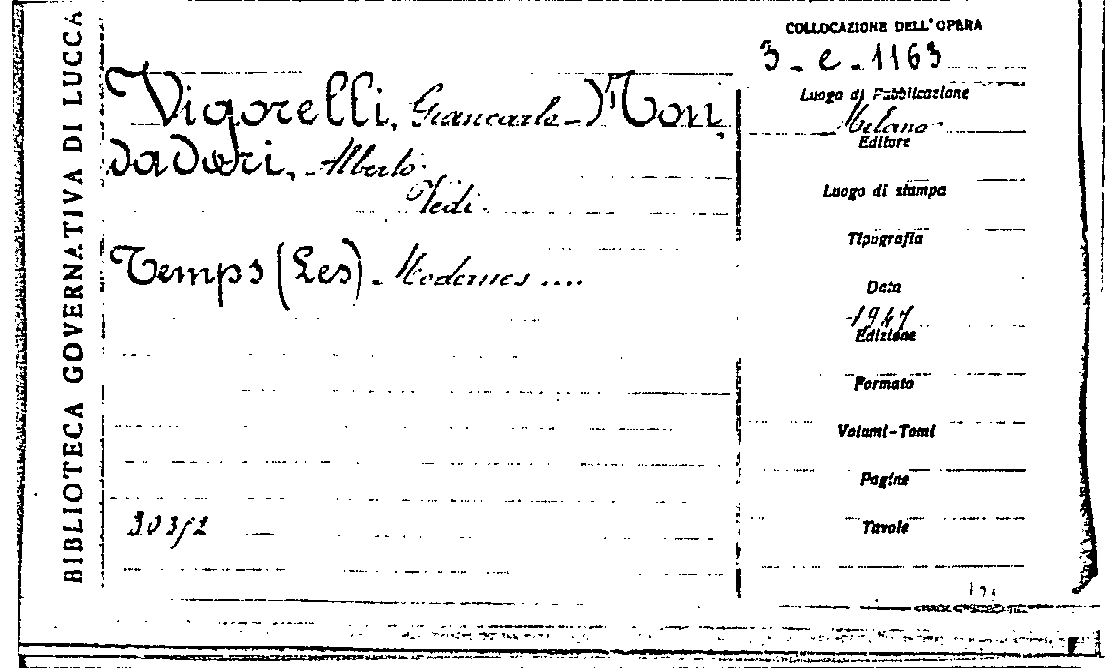 BIBLIOTECA GOVERNATIVA DI LUCCA
COLLOCAZIONE DELL'OPERA
3-e-1163
Vigorelli, Giancarlo-Mon
dadori, Alberto.
Vedi.
Temps (Les). Modernes ....
30352
Luogo di Pubblicazione
Milano
Editore
Luogo di stampa
Tipografia
Data
1947
Edizione
Formato
Volumi-Tomi
Pagine
Tavole